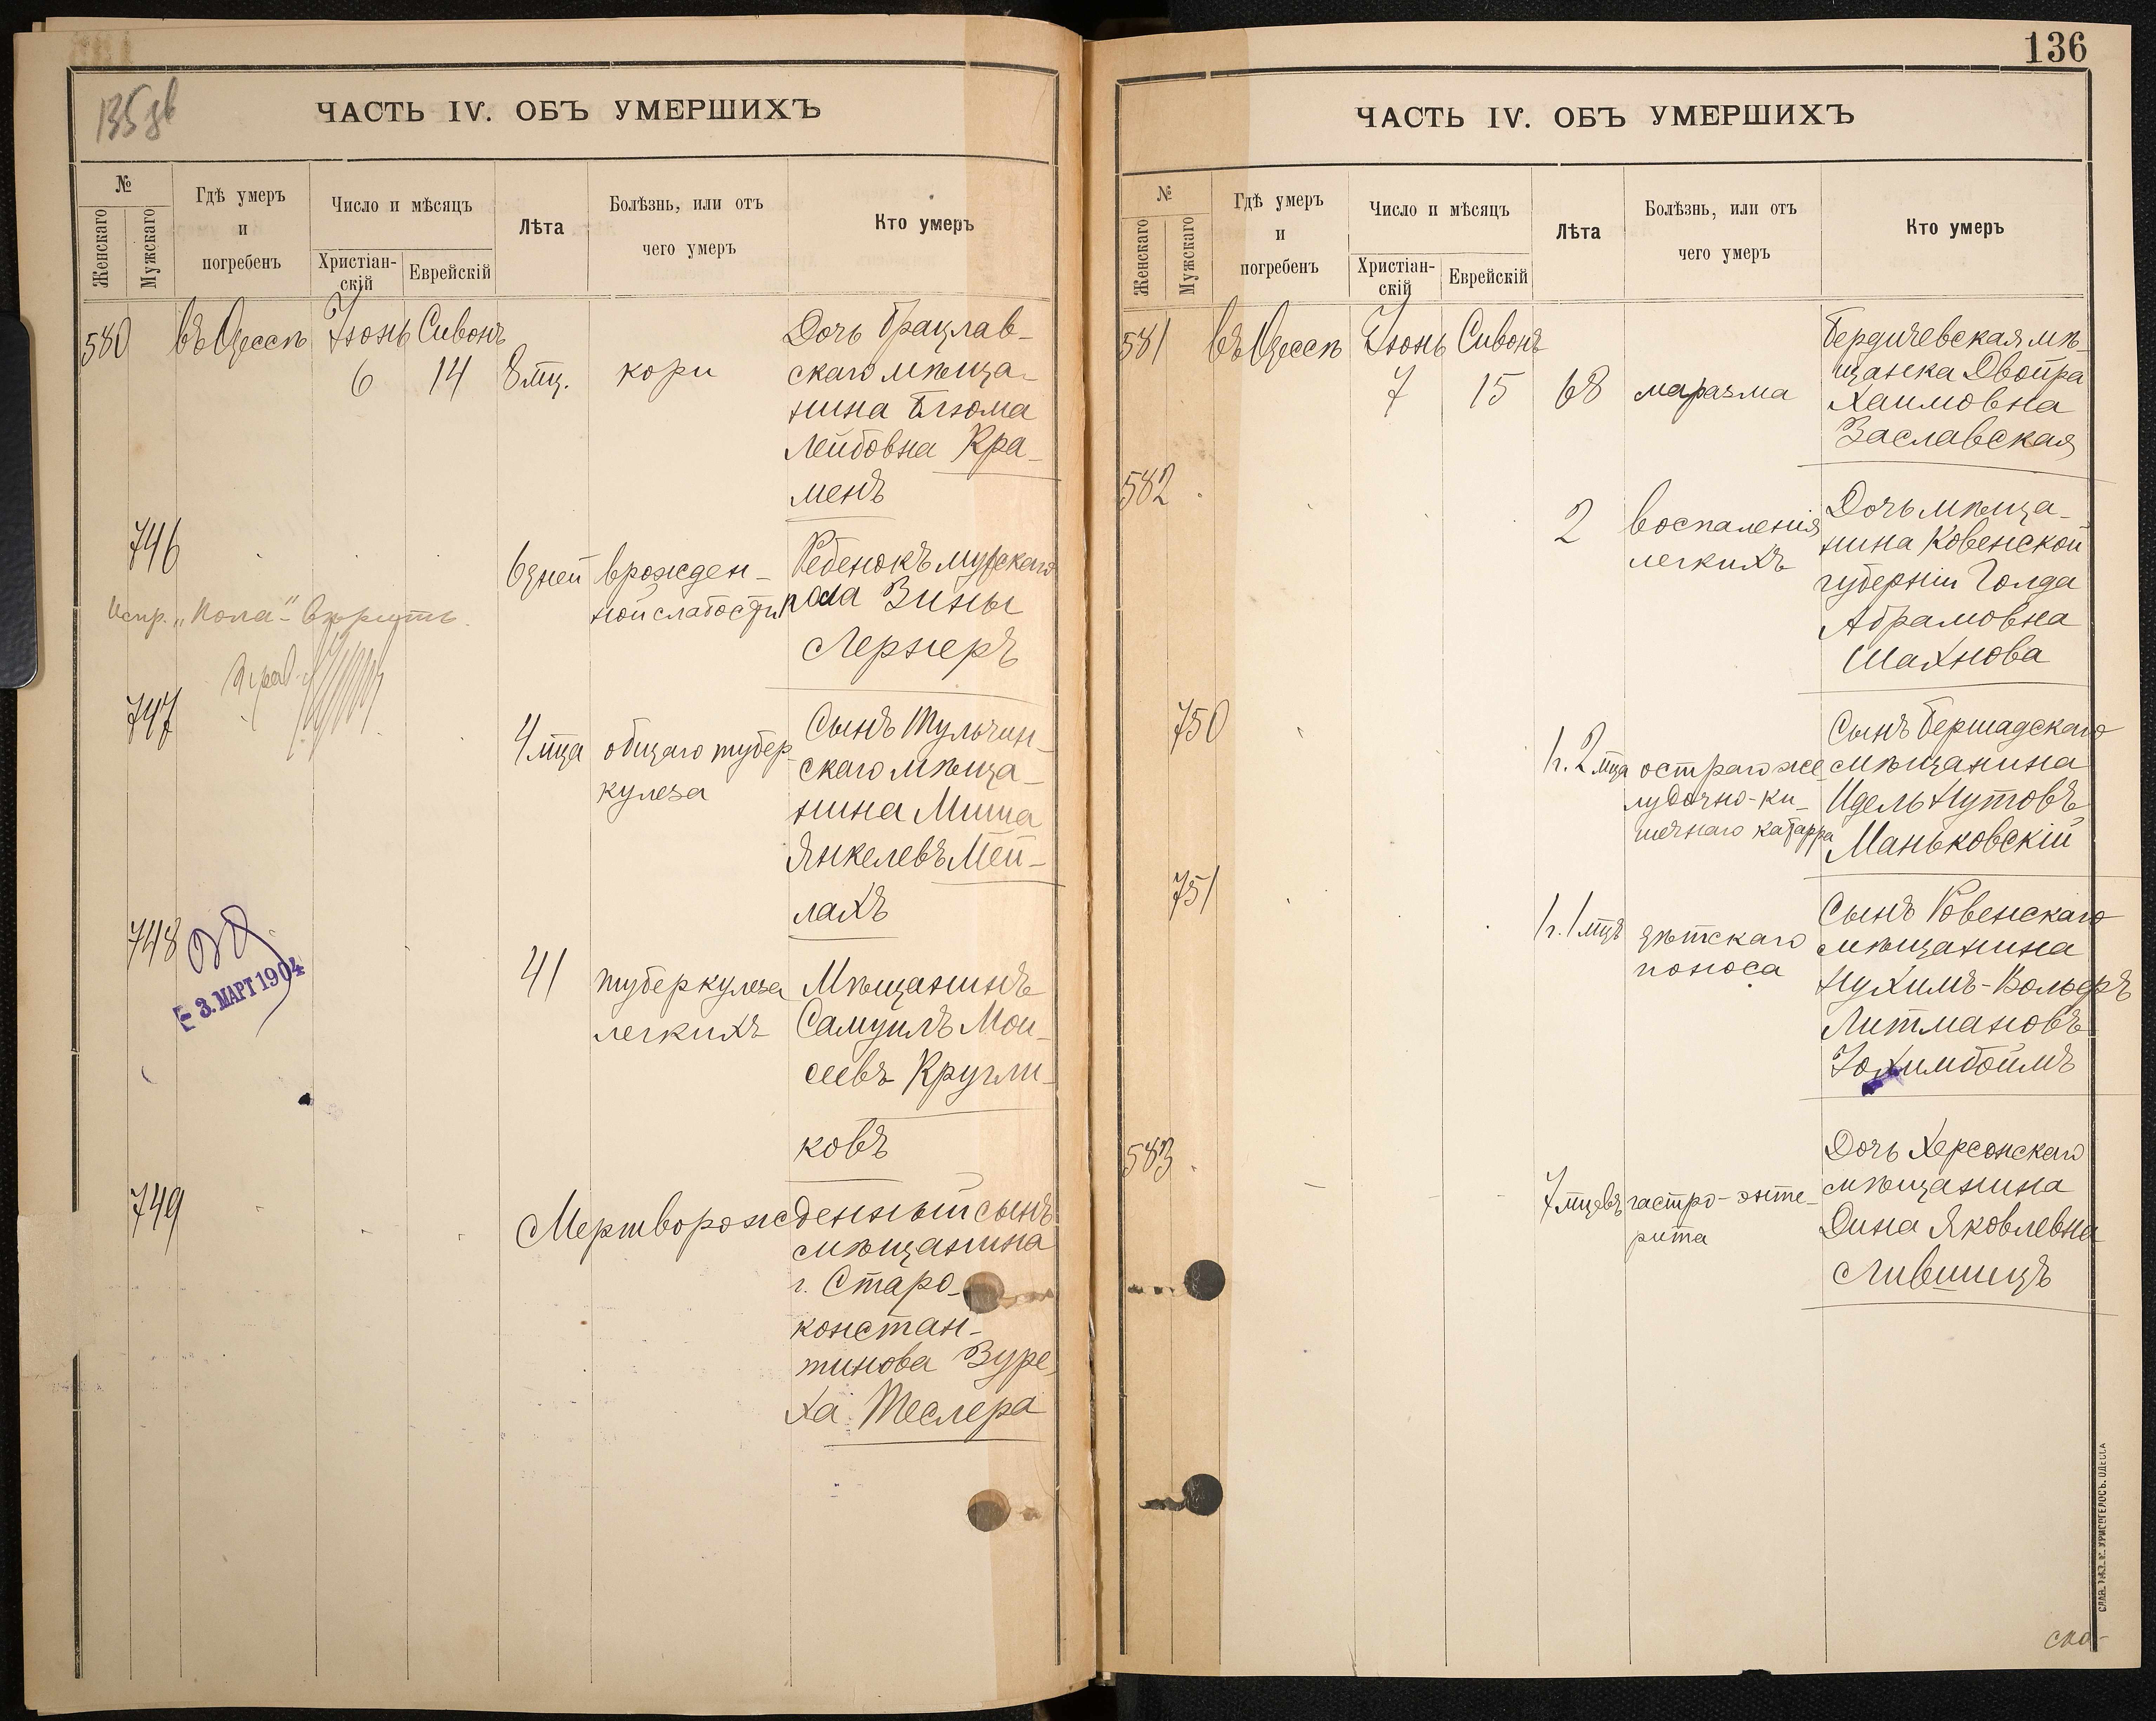 135 об
ЧАСТЬ IV. ОБЪ УМЕРШИХЪ
№
Женскаго
Мужскаго
Гдѣ умеръ
и
погребенъ
Число и мѣсяцъ
Христіан-
скій
Еврейскій
Лѣта
Болѣзнь, или отъ
чего умеръ
Кто умеръ
580 въ Одессѣ Іюнь Сивонъ
6 14 8 мц. кори
Дочь Брацлав-
скаго мѣща-
нина Блюма
Лейбовна Кра-
менъ
746
6 дней врожден-
ной слабости
Ребенокъ мужскаго
пола Зины
Лернеръ
Испр. „пола" вѣрить.
747
4 мца общаго тубер-
кулеза
Сынъ Тульчин-
скаго мѣща-
нина Миша
Янкелевъ Мей-
лахъ
748
- 3. МАРТ 1904
41 туберкулеза
легкихъ
Мѣщанинъ
Самуилъ Мои-
сеевъ Кругли-
ковъ
749
Мертворожденный сынъ
мѣщанина
г. Старо-
констан-
тинова Зуре-
ха Теслера
136
ЧАСТЬ IV. ОБЪ УМЕРШИХЪ
№
Женскаго
Мужскаго
Гдѣ умеръ
и
погребенъ
Число и мѣсяцъ
Христіан-
скій
Еврейскій
Лѣта
Болѣзнь, или отъ
чего умеръ
Кто умеръ
581 въ Одессѣ Іюнь Сивонъ
7 15 68 маразма
Бердичевская мѣ-
щанка Двойра
Хаимовна
Заславская
582
2 воспаленія
легкихъ
Дочь мѣща-
нина Ковенской
губерніи Голда
Абрамовна
Шахнова
750
1 г. 2 мца остраго же-
лудочно-ки-
шечнаго катарра
Сынъ Бершадскаго
мѣщанина
Идель Нутовъ
Маньковскій
751
1 г. 1 мцъ дѣтскаго
поноса
Сынъ Ровенскаго
мѣщанина
Нухимъ-Вольфъ
Литмановъ
Іохимбоймъ
583
7 мцевъ гастро-энте-
рита
Дочь Херсонскаго
мѣщанина
Дина Яковлевна
Лившицъ